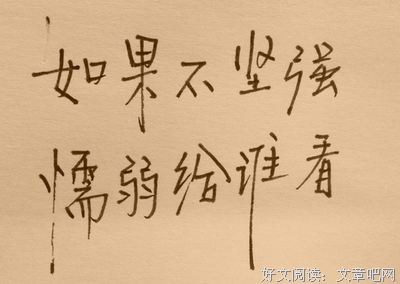 如果不坚强
懦弱给谁看
好文阅读：文章吧网